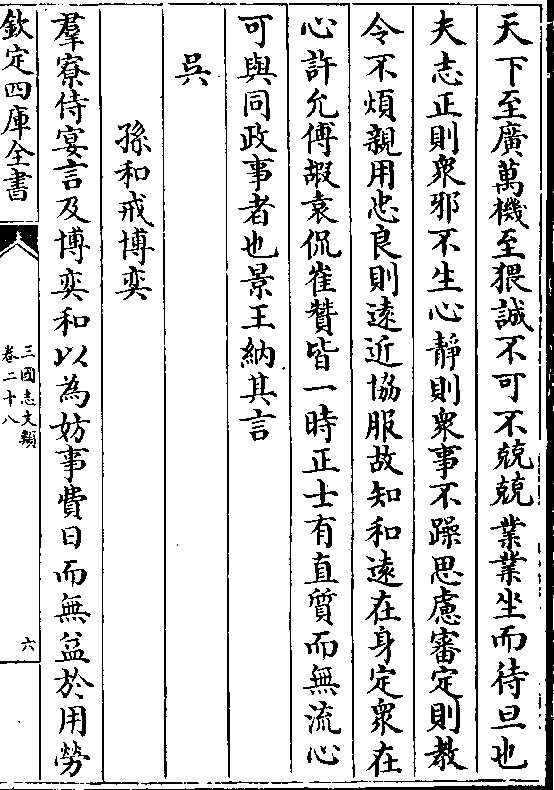 天下至廣萬機至猥誠不可不兢兢業業坐而待旦也
夫志正則衆邪不生心靜則衆事不躁思慮審定則教
令不煩親用忠良則遠近協服故知和遠在身定衆在
心許允傅嘏袁侃崔贊皆一時正士有直質而無流心
可與同政事者也景王納其言
吳
孫和戒博奕
羣寮侍宴言及博奕和以為妨事費日而無益於用勞
欽定四庫全書
三國志文類
卷二十八
六